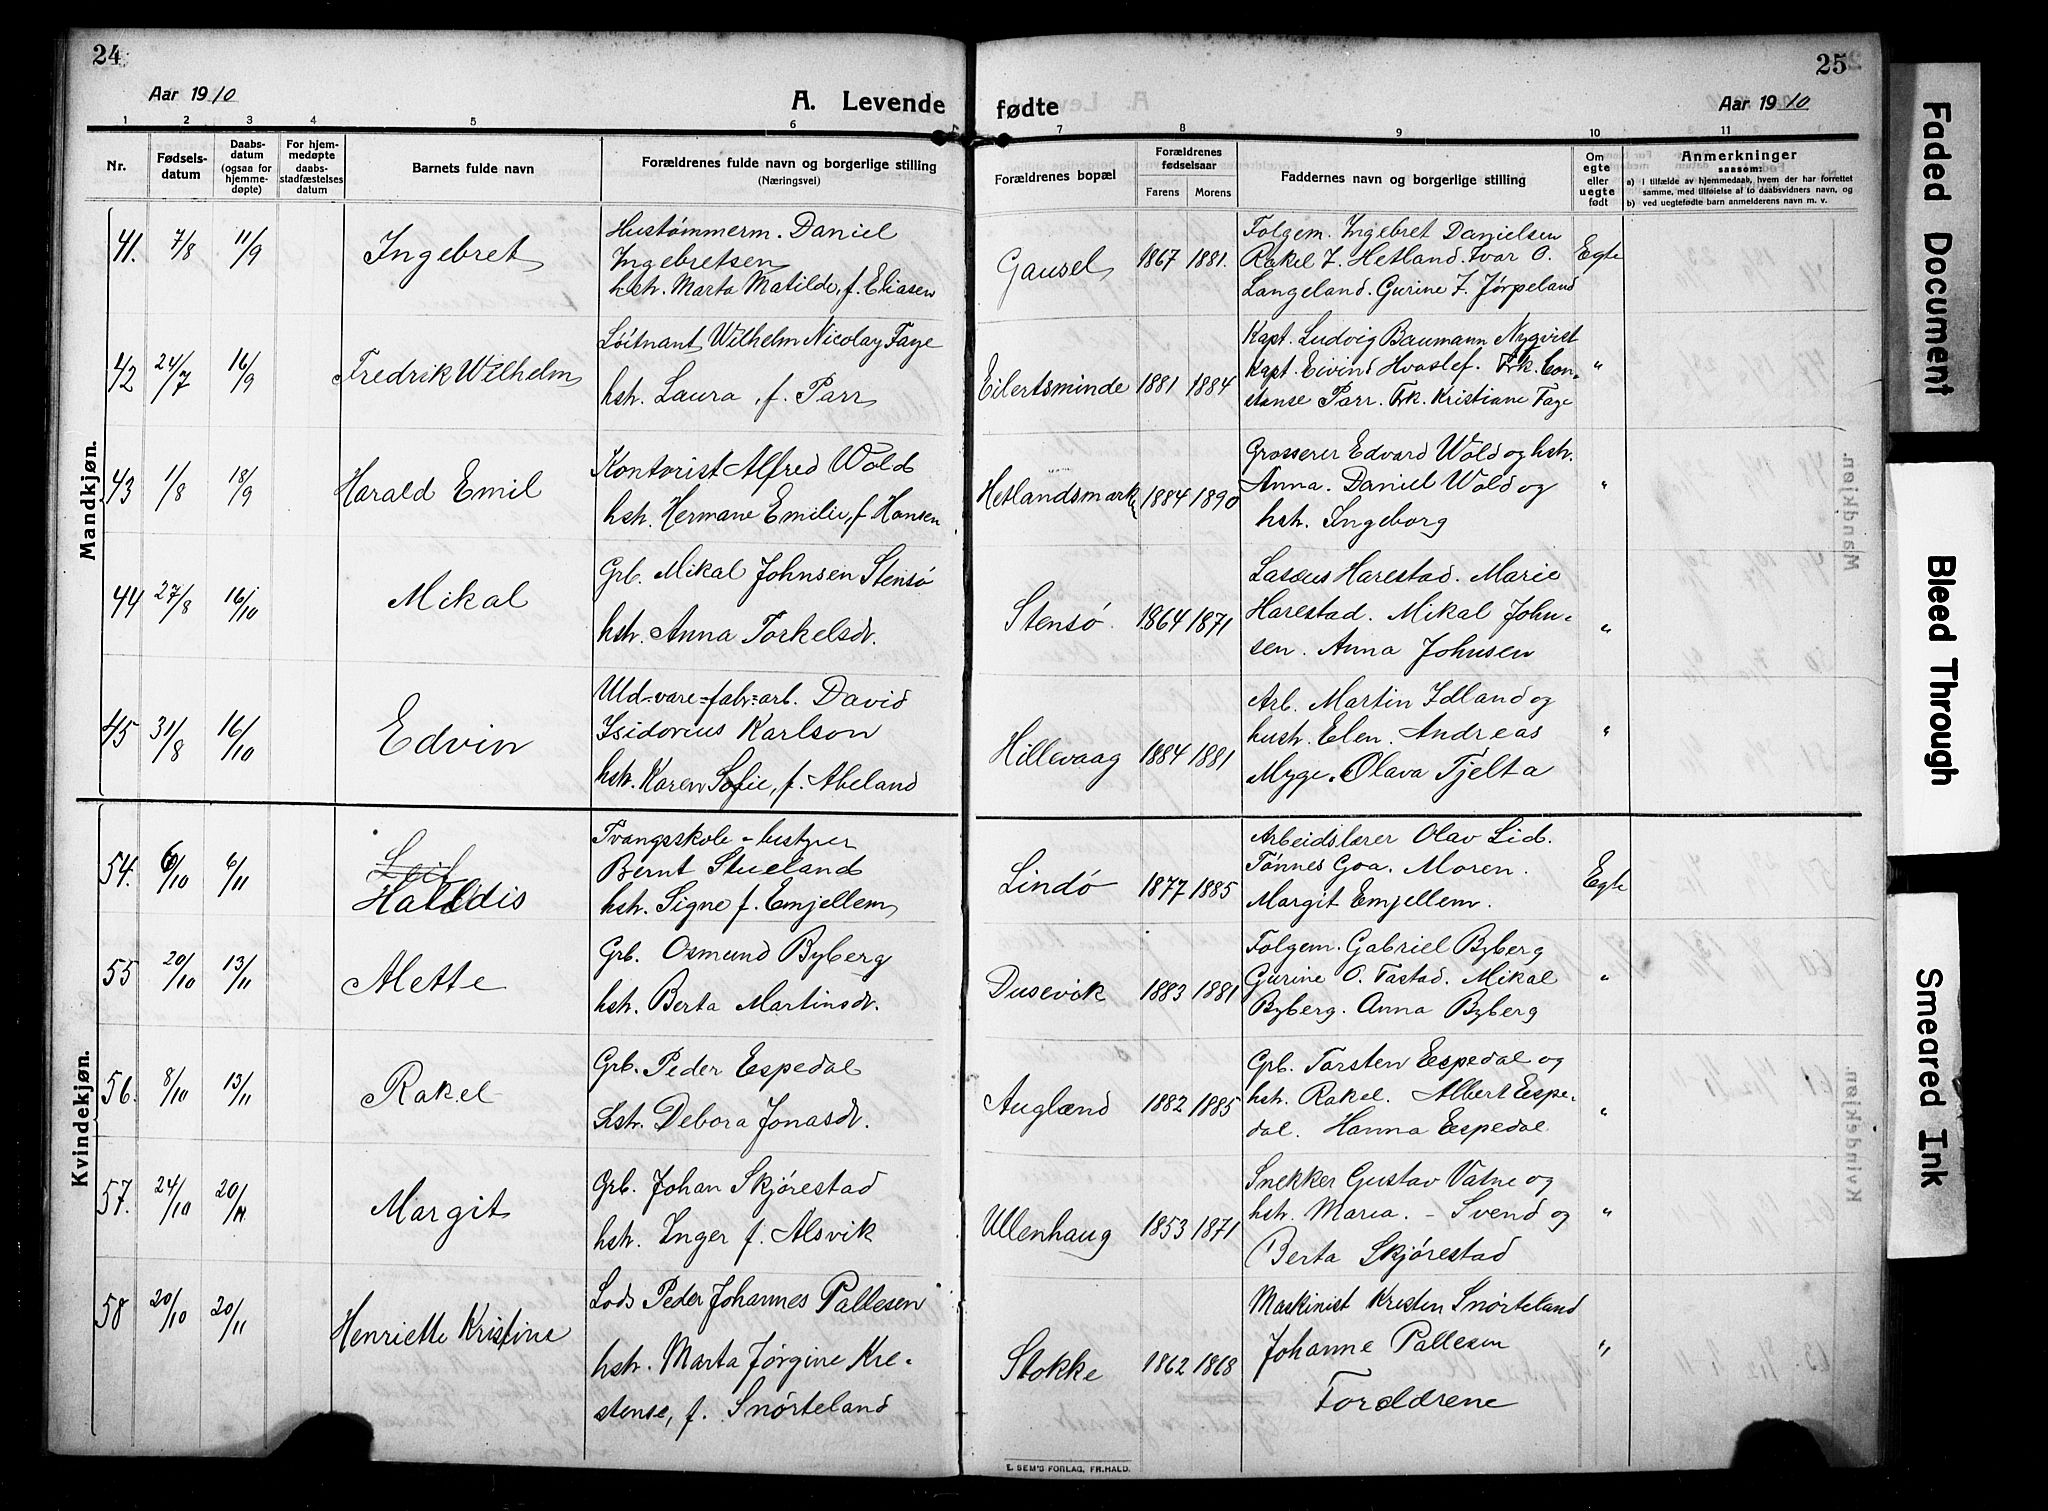 24
Aar 1910
A. Levende
1 2 3 4 5 6
Nr.
Fødsels-
datum
Daabs-
datum
(ogsaa for
hjemme-
døpte)
For hjem-
medøpte
daabs-
stadfæstelses
datum
Barnets fulde navn
Forældrenes fulde navn og borgerlige stilling
(Næringsvei)
Mandkjøn.
41. 7/8 11/9 Ingebret
Hustømmerm. Daniel
Ingebretsen
hstr. Marta Matilde, f. Eliasen
42 24/7 16/9 Fredrik Wilhelm
Løitnant Wilhelm Nicolay Faye
hstr. Laura, f. Parr
43 1/8 18/9 Harald Emil
Kontorist Alfred Wold
hstr. Hermane Emilie, f. Hansen
44 27/8 16/10 Mikal
Grb. Mikal Johnsen Stensø
hstr. Anna Torkelsdr.
45 31/8 16/10 Edvin
Uld-vare-fabr-arb. David
Isidorius Karlson
hstr. Karen Sofie, f. Abeland
Kvindekjøn.
54. 6/10 6/11 Leif
Halldis
Tvangsskole-bestyrer
Bernt Stueland
hstr. Signe f. Emjellem
55 20/10 13/11 Alette
Grb. Osmund Byberg
hstr. Berta Martinsdr.
56. 8/10 13/11 Rakel
Grb. Peder Espedal
hstr. Debora Jonasdr.
57. 24/10 20/11 Margit
Grb. Johan Skjørestad
hstr. Inger f. Alsvik
58 20/10 20/11 Henriette Kristine
Lods Peder Johannes Pallesen
hstr. Marta Jørgine Kre-
stense, f. Snørteland
25
fødte
Aar 1910
7 8 9 10 11
Forældrenes bopæl
Forældrenes
fødselsaar
Farens Morens
Faddernes navn og borgerlige stilling
Om
egte
eller
uegte
født
Anmerkninger
saasom:
a) I tilfælde av hjemmedaab, hvem der har forrettet
samme, med tilføielse af to daabsvidners navn, og
b) ved uegtefødte barn anmelderens navn m. v.
Gausel 1867 1881.
Folgem. Ingebret Danielsen
Rakel T. Hetland. Ivar O.
Langeland. Gurine T. Jørpeland
Egte
Eilertsminde 1881 1884
Kapt. Ludvig Baumann Nyqvist
Kapt. Eivind Hvoslef. Frk. Con-
stanse Parr. Frk. Kristiane Faye
"
Hetlandsmark 1884 1890
Grosserer Edvard Wold og hstr.
Anna. Daniel Wold og
hstr. Ingeborg
"
Stensø. 1864 1871
Lasæus Harestad. Marie
Harestad. Mikal John-
sen. Anna Johnsen
"
Hillevaag 1884 1881
Arb. Martin Idland og
hustr. Elen. Andreas
Myge. Olava Tjelta
"
Lindø 1877 1885
Arbeidslærer Olav Lid.
Tønnes Goa. Moren.
Margit Emjellem.
Egte
Dusevik 1883 1881
Folgem. Gabriel Byberg
Gurine O. Tastad. Mikal
Byberg. Anna Byberg
"
Auglænd 1882 1885
Grb. Torsten Espedal og
hstr. Rakel. Albert Espe-
dal. Hanna Espedal
"
Ullenhaug 1853 1871
Snekker Gustav Vatne og
hstr. Maria. - Svend og
Berta Skjørestad
"
Stokke 1862 1868
Maskinist Kristen Snørteland
Johanne Pallesen
Forældrene
"
E. SEM'S FORLAG, FR.HALD.
Faded Document
Bleed Through
Smeared Ink